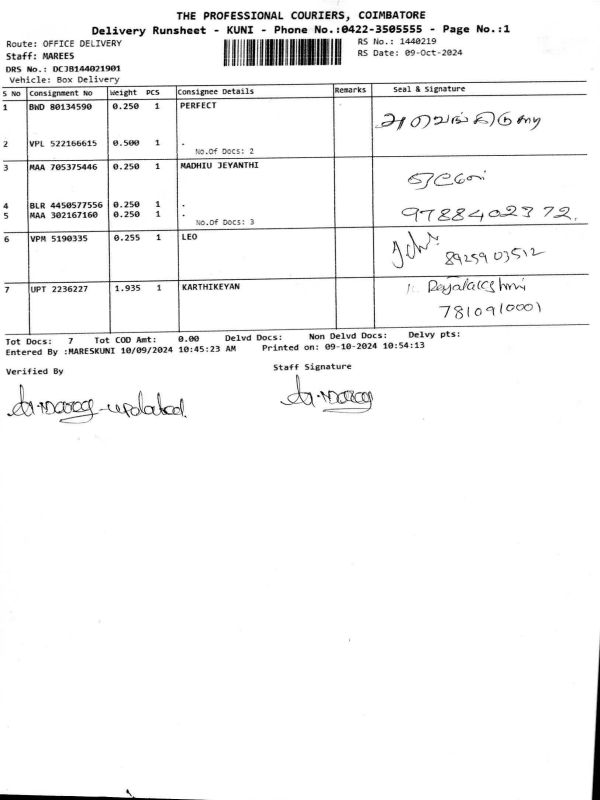 THE PROFESSIONAL COURIERS, COIMBATORE
Delivery Runsheet - KUNI - Phone No.:0422-3505555 - Page No.:1
Route: OFFICE DELIVERY RS No.: 1440219
Staff: MAREES RS Date: 09-Oct-2024
DRS No.: DCJB144021901
Vehicle: Box Delivery
S No Consignment No Weight PCS Consignee Details Remarks Seal & Signature
1 BWD 80134590 0.250 1 PERFECT
2 VPL 522166615 0.500 1 .
No.Of Docs: 2
3 MAA 705375446 0.250 1 MADHIU JEYANTHI
4 BLR 4450577556 0.250 1 .
5 MAA 302167160 0.250 1 . 9788402372.
No.Of Docs: 3
6 VPM 5190335 0.255 1 LEO
8925903512
7 UPT 2236227 1.935 1 KARTHIKEYAN
7810910001
Tot Docs: 7 Tot COD Amt: 0.00 Delvd Docs: Non Delvd Docs: Delvy pts:
Entered By :MARESKUNI 10/09/2024 10:45:23 AM Printed on: 09-10-2024 10:54:13
Verified By Staff Signature
updated